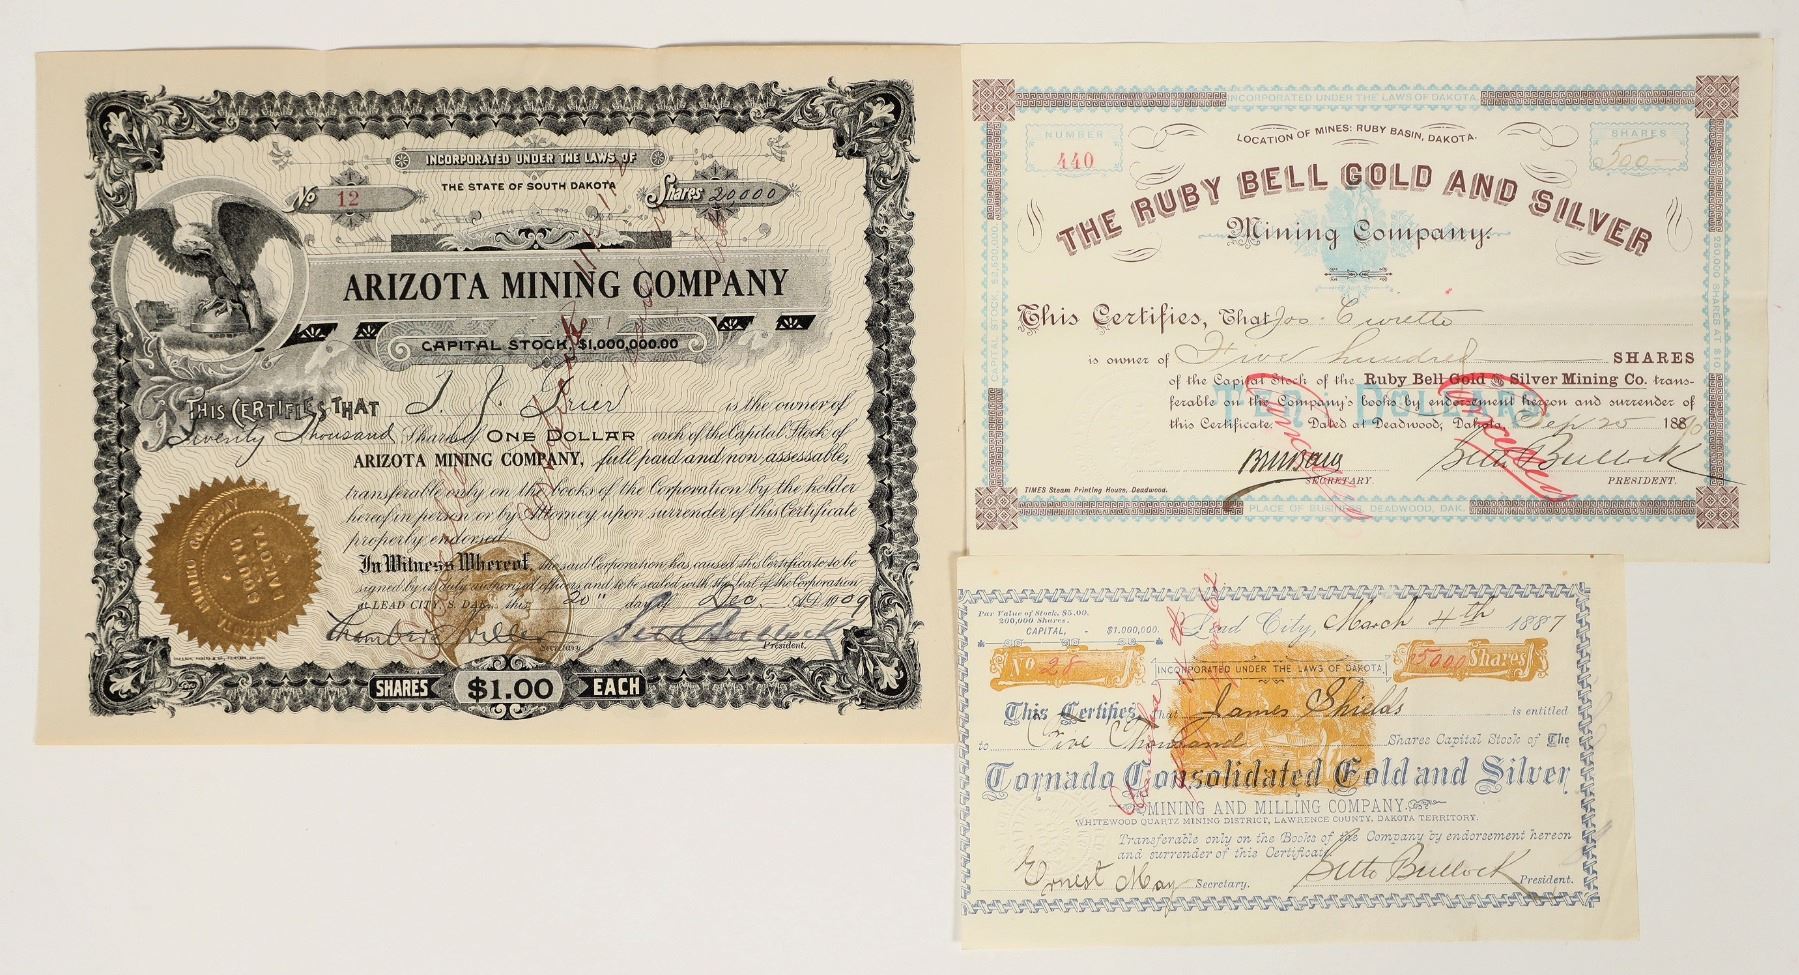 INCORPORATED UNDER THE LAWS OF
THE STATE OF SOUTH DAKOTA
No 12
Shares 20000
ARIZOTA MINING COMPANY
CAPITAL STOCK $1,000,000.00
THIS CERTIFIES THAT T. J. Grier is the owner of
Twenty Thousand Shares of ONE DOLLAR each of the Capital Stock of
ARIZOTA MINING COMPANY, full paid and non-assessable,
transferable only on the books of the Corporation by the holder
hereof in person or by Attorney upon surrender of this Certificate
properly endorsed.
In Witness Whereof, the said Corporation has caused this Certificate to be
signed by its duly authorized officers and to be sealed with the Seal of the Corporation
at LEAD CITY, S. DAK. this 20" day of Dec. A.D. 1909
Seth Bullock
Secretary.
President.
SHARES $1.00 EACH
ARIZOTA MINING COMPANY
SOUTH DAKOTA
INCORPORATED UNDER THE LAWS OF DAKOTA
NUMBER
440
LOCATION OF MINES: RUBY BASIN, DAKOTA.
SHARES
500
THE RUBY BELL GOLD AND SILVER
Mining Company.
CAPITAL STOCK, $2,500,000.
250,000 SHARES AT $10.
This Certifies, That Jos. Curette
is owner of Five hundred SHARES
of the Capital Stock of the Ruby Bell Gold and Silver Mining Co. trans-
ferable on the Company's books by endorsement hereon and surrender of
TEN DOLLARS
this Certificate. Dated at Deadwood, Dakota, Sep 25 188
Seth Bullock
SECRETARY.
PRESIDENT.
TIMES Steam Printing House, Deadwood.
PLACE OF BUSINESS, DEADWOOD, DAK.
Par Value of Stock, $5.00.
200,000 Shares.
CAPITAL, - $1,000,000.
Lead City, March 4th 1887
No 28
INCORPORATED UNDER THE LAWS OF DAKOTA.
5000 Shares
This Certifies that James Shields is entitled
to Five Thousand Shares Capital Stock of The
Tornado Consolidated Gold and Silver
MINING AND MILLING COMPANY.
WHITEWOOD QUARTZ MINING DISTRICT, LAWRENCE COUNTY, DAKOTA TERRITORY.
Transferable only on the Books of the Company by endorsement hereon
and surrender of this Certificate.
Ernest May Secretary. Seth Bullock President.